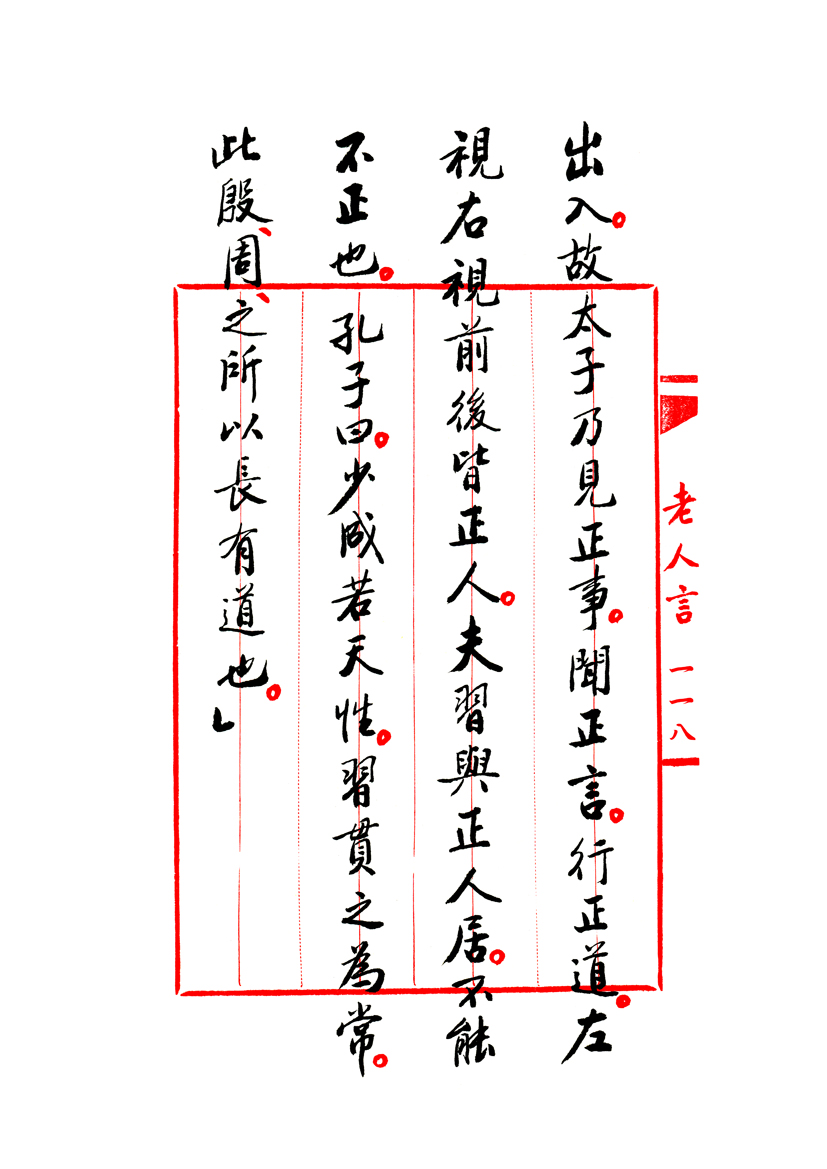 出入。故太子乃見正事。聞正言。行正道。左
視右視前後皆正人。夫習與正人居。不能
不正也。孔子曰。少成若天性。習貫之為常。
此殷、周、之所以長有道也。」
老人言 一一八